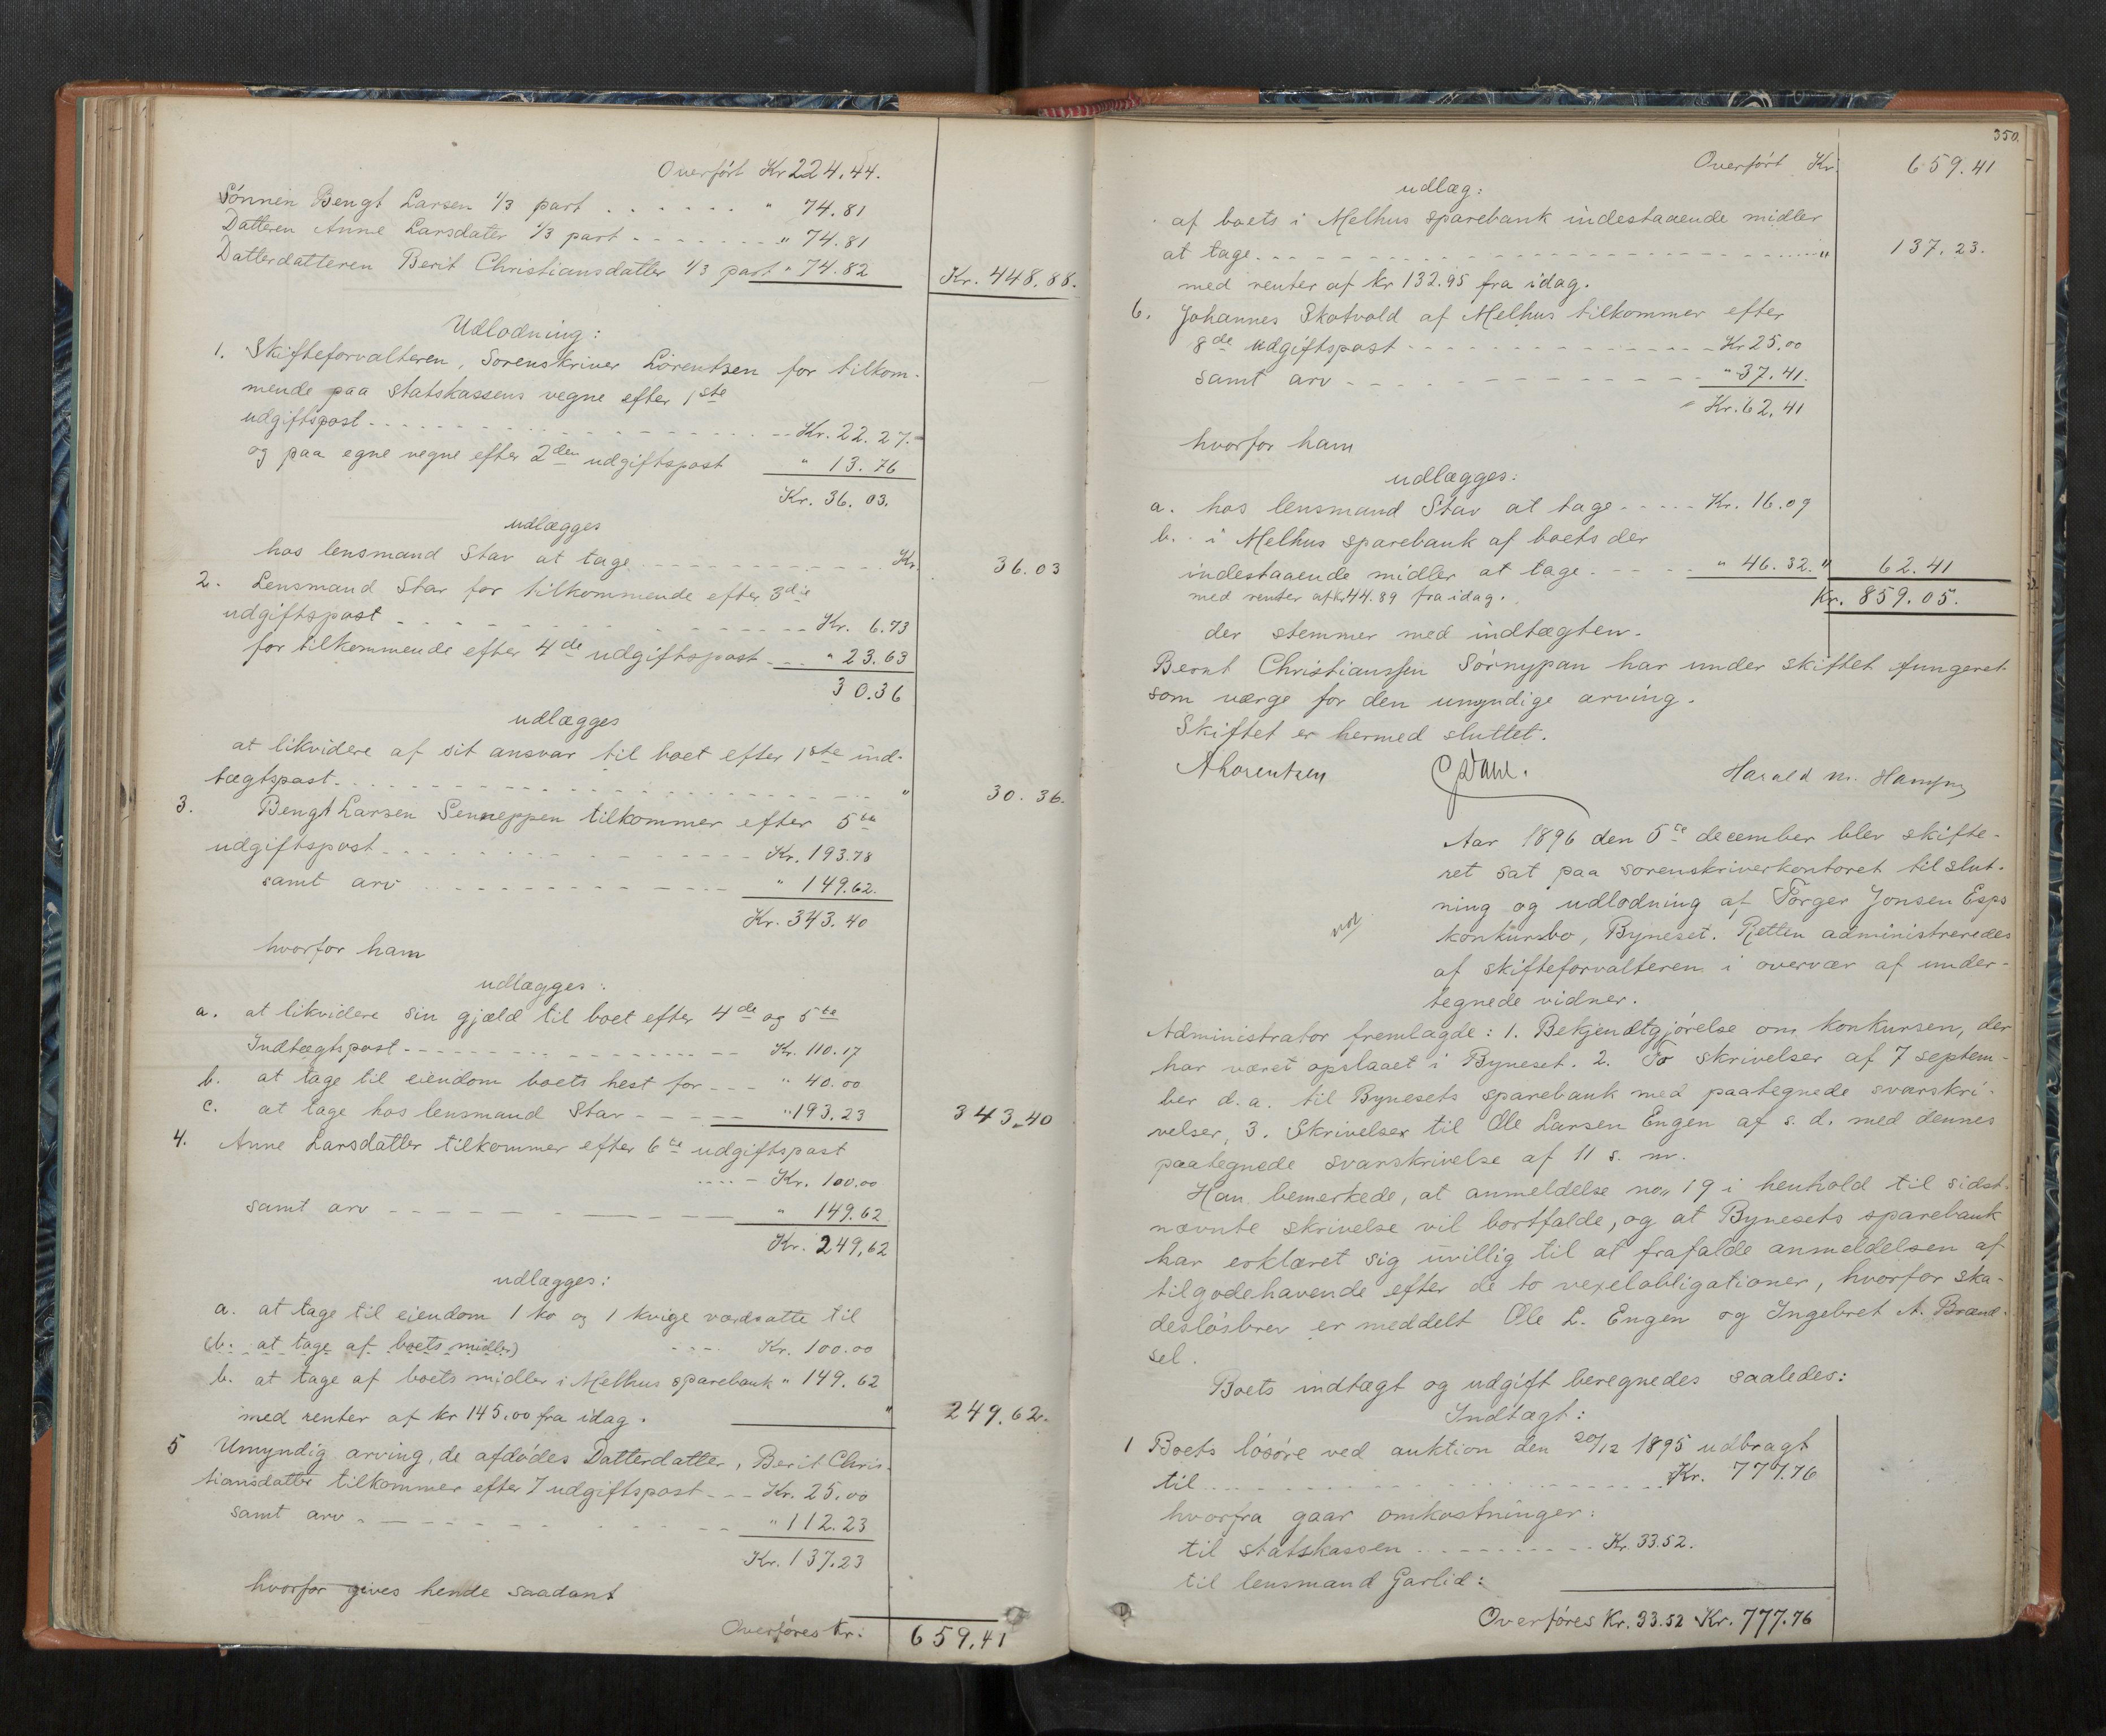 Overført Kr 224.44.
Sønnen Bengt Larsen 1/3 part . . . . . . " 74.81
Datteren Anne Larsdater 1/3 part - - - - - - - " 74.81
Datterdatteren Berit Christiansdatter 1/3 part " 74.82 Kr. 448.88.
Udlodning:
1. Skifteforvalteren, Sorenskriver Lorentzen for tilkom-
mende paa statskassens vegne efter 1ste
udgiftspost - - - - - Kr. 22.27.
og paa egne vegne efter 2den udgiftspost " 13.76
Kr. 36.03.
udlægges
hos lensmand Stav at tage - - - - - Kr. 36.03
2. Lensmand Stav for tilkommende efter 3die
udgiftspost - - - - - Kr. 6.73
for tilkommende efter 4de udgiftspost - - - " 23.63
30.36
udlægges
at likvidere af sit ansvar til boet efter 1ste ind-
tægtspost - - - - - " 30.36.
3. Bengt Larsen Senneppen tilkommer efter 5te
udgiftspost - - - - - Kr. 193.78
samt arv - - - - - " 149.62.
Kr. 343.40
hvorfor ham
udlægges:
a. at likvidere sin gjæld til boet efter 4de og 5te
Indtægtspost - - - - - Kr. 110.17
b. at tage til eiendom boets hest for - - - " 40.00
c. at tage hos lensmand Stav - - - - - " 193.23 343.40
4. Anne Larsdatter tilkommer efter 6te udgiftspost
- - - - Kr. 100.00
samt arv - - - - - " 149.62
Kr. 249,62
udlægges:
a. at tage til eiendom 1 ko og 1 kvige værdsatte til
(b. at tage af boets midler) - - - Kr. 100.00
b. at tage af boets midler i Melhus sparebank " 149.62
med renter af kr 145.00 fra idag. " 249.62.
5 Umyndig arving, de afdødes Datterdatter, Berit Chris-
tiansdatter tilkommer efter 7 udgiftspost - - - Kr. 25.00
samt arv - - - - - " 112.23
Kr. 137.23
hvorfor gives hende saadant
Overføres Kr: 659.41
350.
Overført Kr. 659.41
udlæg:
af boets i Melhus sparebank indestaaende midler
at tage - - - - - " 137.23.
med renter af kr 132.95 fra idag.
6. Johannes Skotvold af Melhus tilkommer efter
8de udgiftspost - - - - - Kr 25.00
samt arv - - - - - " 37.41.
Kr. 62.41
hvorfor ham
udlægges:
a. hos lensmand Stav at tage - - - - - Kr. 16.09
b. i Melhus sparebank af boets der
indestaaende midler at tage - - - - - " 46.32. " 62.41
med renter af kr 44.89 fra idag. Kr. 859.05.
der stemmer med indtægten.
Bernt Christianssen Sørnypan har under skiftet fungeret
som værge for den umyndige arving.
Skiftet er hermed sluttet.
A Lorentzen Harald M.
Aar 1896 den 5te december blev skifte-
ret sat paa sorenskriverkontoret til slut-
ning og udlodning af Torger Jonsen Esps
konkursbo, Byneset. Retten administreredes
af skifteforvalteren i overvær af under-
tegnede vidner.
Administrator fremlagde: 1. Bekjendtgjørelse om konkursen, der
har været opslaaet i Byneset. 2. To skrivelser af 7 septem-
ber d.a. til Bynesets sparebank med paategnede svarskri-
velser, 3. Skrivelser til Ole Larsen Engen af s. d. med dennes
paategnede svarskrivelse af 11 s. m.
Han bemerkede, at anmeldelse no. 19 i henhold til sidst-
nævnte skrivelse vil bortfalde, og at Bynesets sparebank
har erklæret sig uvillig til at frafalde anmeldelsen af
tilgodehavende efter de to vexelobligationer, hvorfor ska-
desløsbrev er meddelt Ole L. Engen og Ingebret A. Brænd-
sel.
Boets indtægt og udgift beregnedes saaledes:
Indtægt:
1 Boets løsøre ved auktion den 20/12 1895 udbragt
til - - - - - Kr. 777.76
hvorfra gaar omkostninger:
til statskassen - - - - - Kr. 33.52.
til lensmand Garlid:
Overføres Kr. 33.52 Kr. 777.76